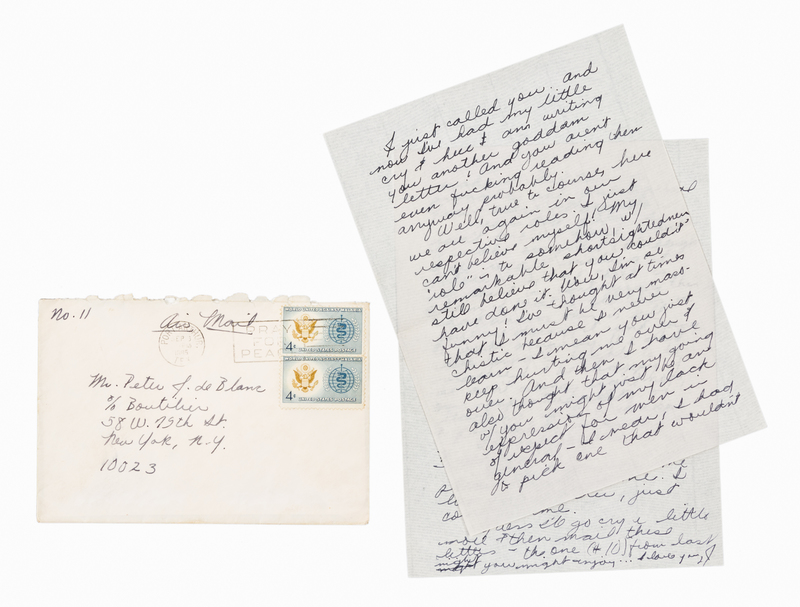 No. 11
Air Mail
PRAY
FOR
PEACE
4¢
UNITED STATES POSTAGE
4¢
UNITED STATES POSTAGE
Mr. Peter J. de Blanc
c/o Boutilier
58 W. 75th St.
New York, N.Y.
10023
I just called you and
now I've had my little
cry & here I am writing
you another goddam
letter! And you aren't
even fucking reading them
anyway probably.
Well, true to courses here
we are again in our
respective roles. I just
can't believe myself! My
"role" is to somehow, w/
remarkable shortsightedness
still believe that you couldn't
have done it. Wow, I'm so
funny! I've thought at times
that I must be very maso-
chistic because I never
learn - I mean you just
keep hurting me over &
over. And then I have
also thought that my going
w/ you might just be an
expression of my lack
of respect for men in
general - I mean, I had
to pick one that wouldn't
me. I
just
me.
guess I'll go cry a little
more & then mail this
letter - the one (#10) from last
night you might enjoy... I love you,